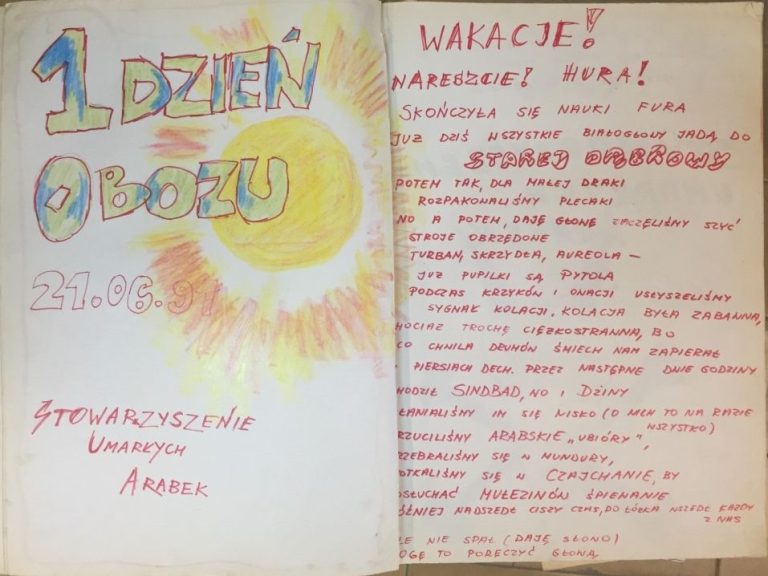 1 DZIEŃ
OBOZU
21.06.91
STOWARZYSZENIE
UMARŁYCH
ARABEK
WAKACJE!
NARESZCIE! HURA!
SKOŃCZYŁA SIĘ NAUKI FURA
JUŻ DZIŚ WSZYSTKIE BIAŁOGŁOWY JADĄ DO
STAREJ DĄBROWY
POTEM TAK, DLA MAŁEJ DRAKI
ROZPAKOWALIŚMY PLECAKI
NO A POTEM, DAJĘ GŁOWĘ ZACZĘLIŚMY SZYĆ
STROJE OBRZĘDOWE
TURBAN, SKRZYDŁA, AUREOLA –
JUŻ PUPILKI SĄ PYTOLA
PODCZAS KRZYKÓW I OWACJI USŁYSZELIŚMY
SYGNAŁ KOLACJI. KOLACJA BYŁA ZABAWNA,
HOCIAŻ TROCHĘ CIĘŻKOSTRAWNA, BO
CO CHWILA DRUHÓW ŚMIECH NAM ZAPIERAŁ
PIERSIACH DECH. PRZEZ NASTĘPNE DWIE GODZINY
HODZIŁ SINDBAD, NO I DŻINY
ŁANIALIŚMY IM SIĘ NISKO (O NICH TO NA RAZIE
WSZYSTKO)
RZUCILIŚMY ARABSKIE „UBIORY",
ZEBRALIŚMY SIĘ W MUNDURY,
OTKALIŚMY SIĘ W CZAJCHANIE, BY
SŁUCHAĆ MUŁEZINÓW ŚPIEWANIE
ŹNIEJ NADSZEDŁ CISZY CZAS, DO ŁÓŻKA WSZEDŁ KAŻDY
Z NAS
LE NIE SPAŁ (DAJĘ SŁOWO)
OGĘ TO PORĘCZYĆ GŁOWĄ